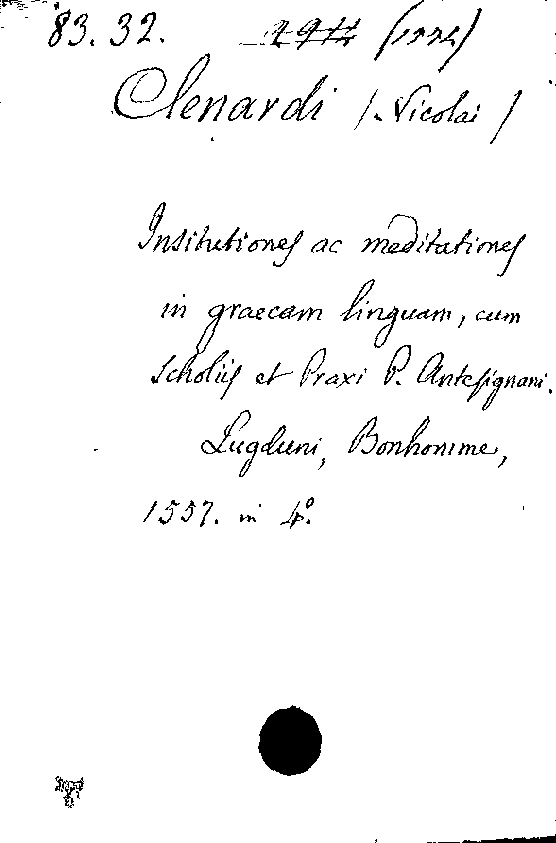 83. 32.
Clenardi (Nicolai)
Institutiones ac meditationes
in graecam linguam, cum
scholiis et Praxi P. Antesignani.
Lugduni, Bonhomme,
1557. in 4º.